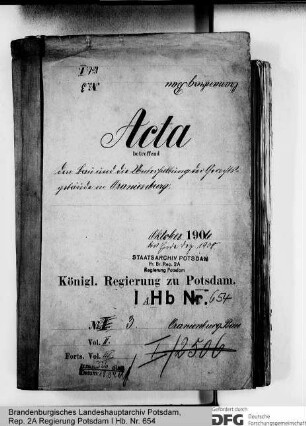 Acta
betreffend
den Bau und die Unterhaltung der Gerichts-
gebäude in Oranienburg.
Oktober 1906
bis Ende Sep. 1908
STAATSARCHIV POTSDAM
Pr. Br. Rep. 2A
Regierung Potsdam
Königl. Regierung zu Potsdam.
I Hb Nr. 654
3.
Vol. II.
Forts. Vol.
I/2506
Brandenburgisches Landeshauptarchiv Potsdam,
Rep. 2A Regierung Potsdam I Hb. Nr. 654
Gefördert durch
DFG Deutsche
Forschungsgemeinschaft